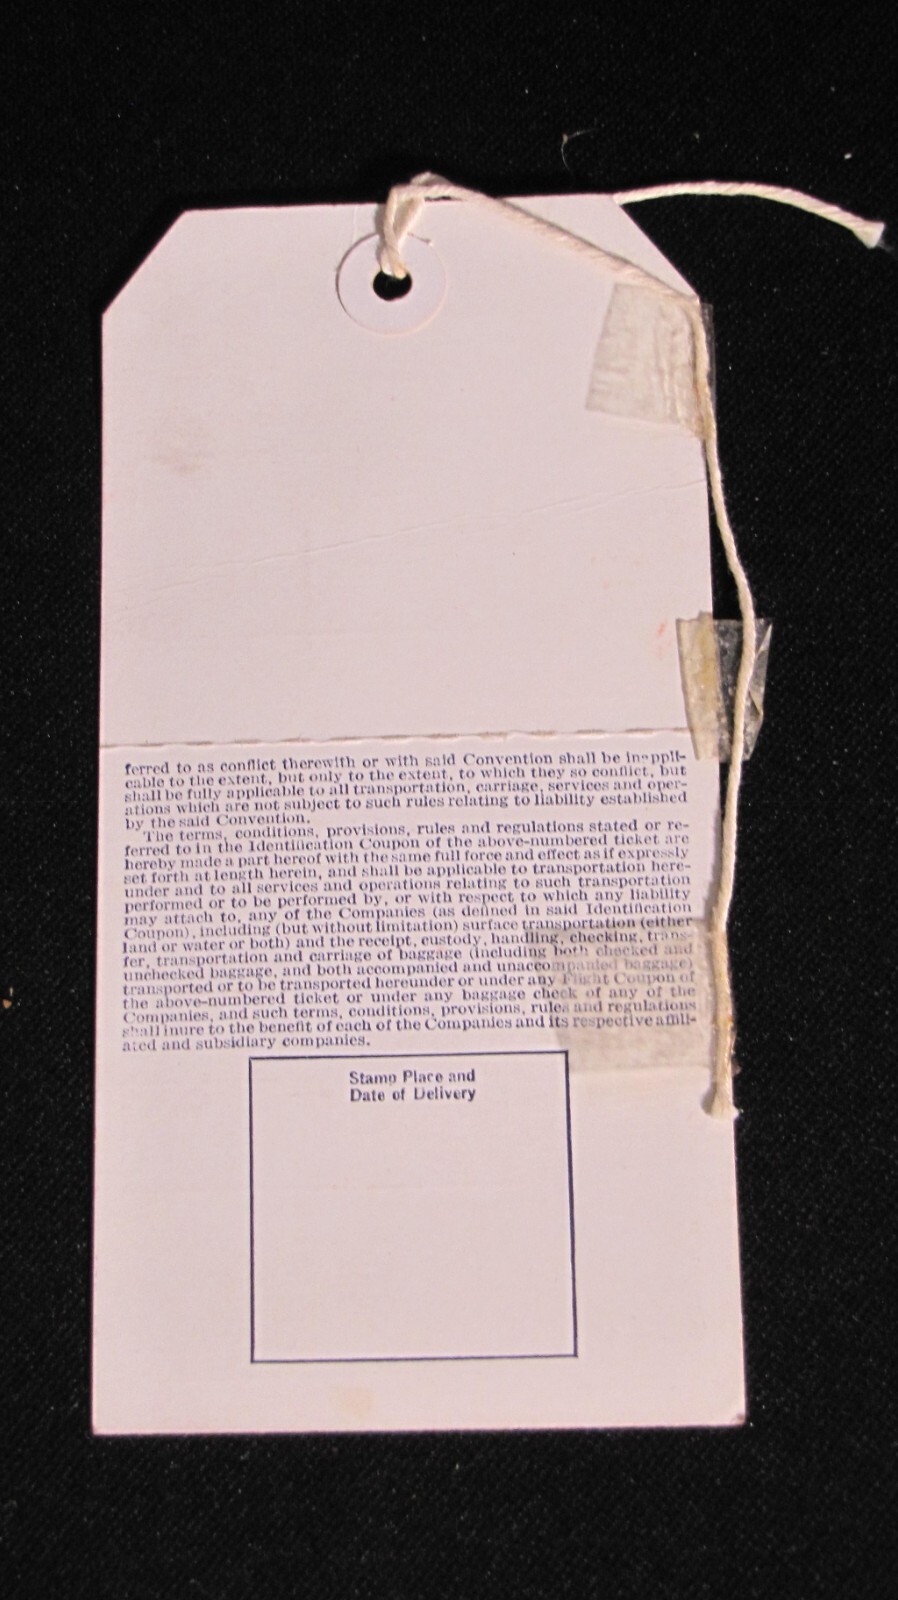 ferred to as conflict therewith or with said Convention shall be inappli-
cable to the extent, but only to the extent, to which they so conflict, but
shall be fully applicable to all transportation, carriage, services and oper-
ations which are not subject to such rules relating to liability established
by the said Convention.
The terms, conditions, provisions, rules and regulations stated or re-
ferred to in the Identification Coupon of the above-numbered ticket are
hereby made a part hereof with the same full force and effect as if expressly
set forth at length herein, and shall be applicable to transportation here-
under and to all services and operations relating to such transportation
performed or to be performed by, or with respect to which any liability
may attach to, any of the Companies (as defined in said Identification
Coupon), including (but without limitation) surface transportation (either
land or water or both) and the receipt, custody, handling, checking, trans-
fer, transportation and carriage of baggage (including both checked and
unchecked baggage, and both accompanied and unaccompanied baggage)
transported or to be transported hereunder or under any Flight Coupon of
the above-numbered ticket or under any baggage check of any of the
Companies, and such terms, conditions, provisions, rules and regulations
shall inure to the benefit of each of the Companies and its respective affili-
ated and subsidiary companies.
Stamp Place and
Date of Delivery